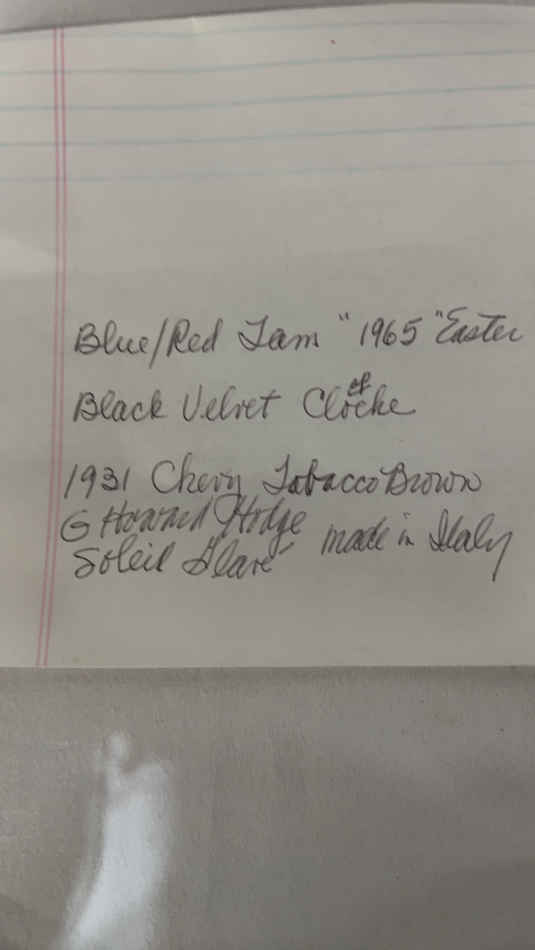 Blue/Red Tam "1965" Easter
Black Velvet Clocke
1931 Chevy Tobacco Brown
G Howard Hodge made in Italy
Soleil